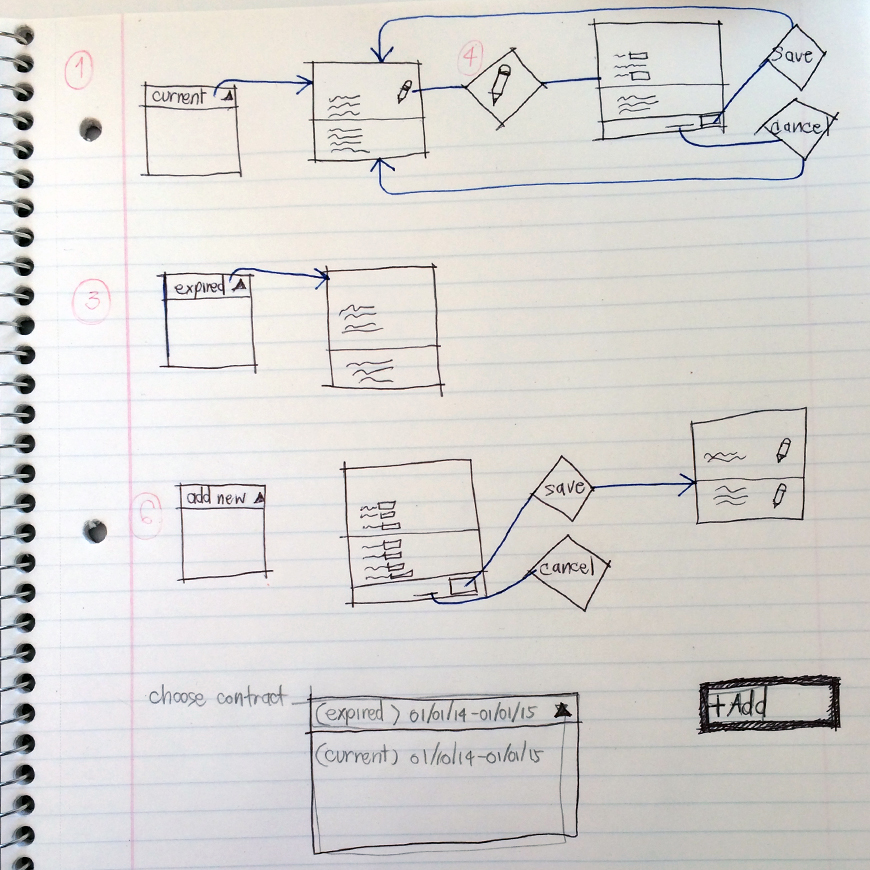 1
4
save
current
cancel
3
expired
6
add new
save
cancel
choose contract
(expired) 01/01/14-01/01/15
+Add
(current) 01/10/14-01/01/15